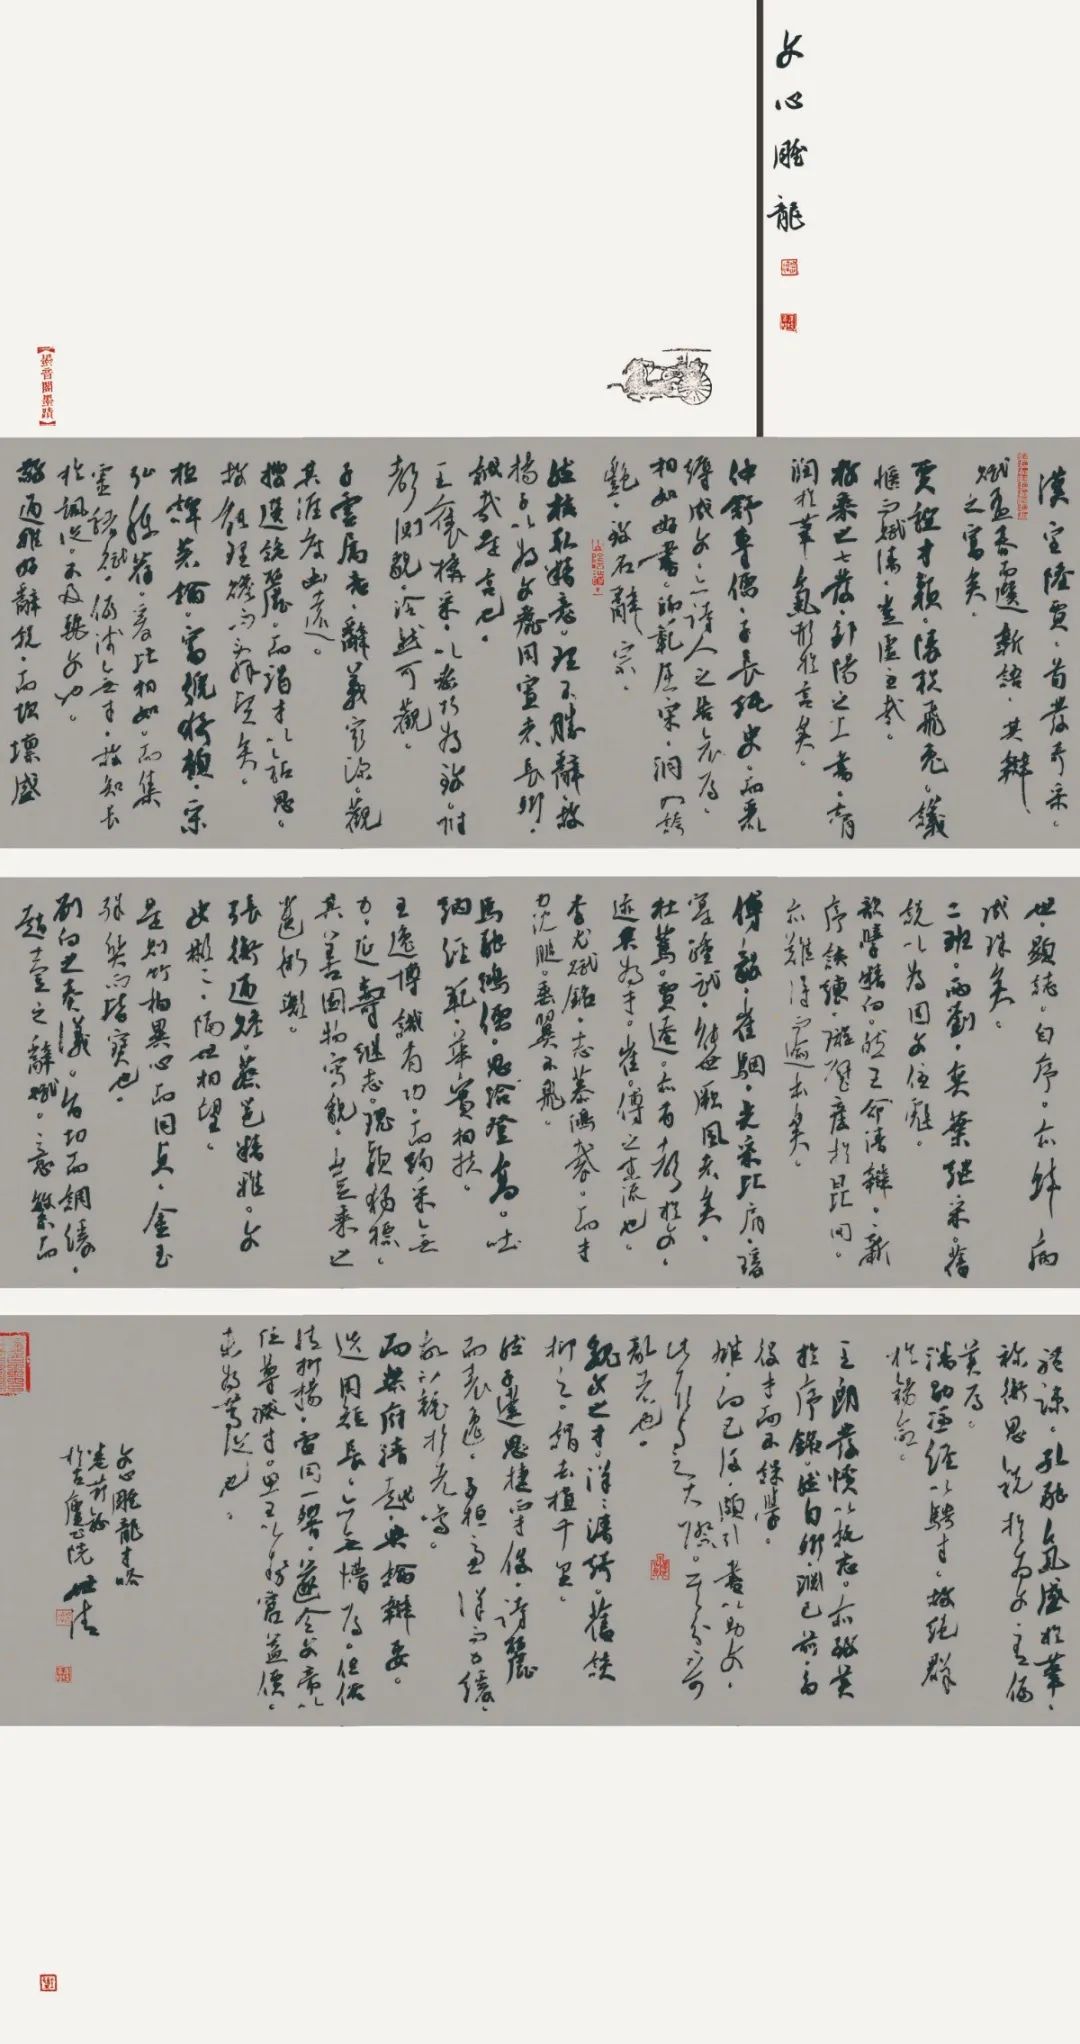 文心雕龍
漢室陸賈。首發奇采。
賦孟春而選新語。其辯
之富矣。
賈誼才穎。陵軼飛兔。議
愜而賦清。豈虛至哉。
枚乘之七發。鄒陽之上書。膏
潤於筆。氣形於言矣。
仲舒專儒。子長純史。而麗
縟成文。亦詩人之告哀焉。
相如好書。師範屈宋。洞入誇
艷。致名辭宗。
然核取精意。理不勝辭。故
揚子以為文麗用寡者長卿。
誠哉是言也。
王褒構采。以密巧為致。附
聲測貌。泠然可觀。
子雲屬意。辭義最深。觀
其涯度幽遠。
搜選詭麗。而竭才以鑽思。
故能理贍而辭堅矣。
桓譚著論。富號猗頓。宋
弘稱薦。爰比相如。而集
靈諸賦。偏淺無才。故知長
於諷諭。不及麗文也。
敬通雅好辭說。而坎壈盛
世。顯志自序。亦蚌病
成珠矣。
二班兩劉。奕葉繼采。舊
說以為固文優彪。
歆學精向。然王命清辯。新
序該練。璿璧產於昆岡。
亦難得而逾本矣。
傅毅崔駰。光采比肩。瑗
寔踵武。能世厥風者矣。
杜篤賈逵。亦有聲於文。
跡其為才。崔傅之末流也。
李尤賦銘。志慕鴻裁。而才
力沈膇。垂翼不飛。
馬融鴻儒。思洽登高。吐
納經範。華實相扶。
王逸博識有功。而絢采無
力。延壽繼志。瑰穎獨標。
其善圖物寫貌。豈枚乘之
遺術歟。
張衡通贍。蔡邕精雅。文
史彬彬。隔世相望。
是則竹柏異心而同貞。金玉
殊質而皆寶也。
劉向之奏議。旨切而調緩。
趙壹之辭賦。意繁而
體疎。孔融氣盛於筆。
禰衡思銳於為文。有偏
美焉。
潘勖憑經以騁才。故絕群
於錫命。
王朗發憤以托志。亦致美
於序銘。然自卿淵已前。多
役才而不課學。
雄向已後。頗引書以助文。
此取與之大際。其分不可
亂者也。
魏文之才。洋洋清綺。舊談
抑之。謂去植千里。
然子建思捷而才俊。詩麗
而表逸。子桓慮詳而力緩。
故不競於先鳴。
而樂府清越。典論辯要。
迭用短長。亦無懵焉。但俗
情抑揚。雷同一響。遂令文帝以
位尊減才。思王以勢窘益價。
未為篤論也。
文心雕龍才略